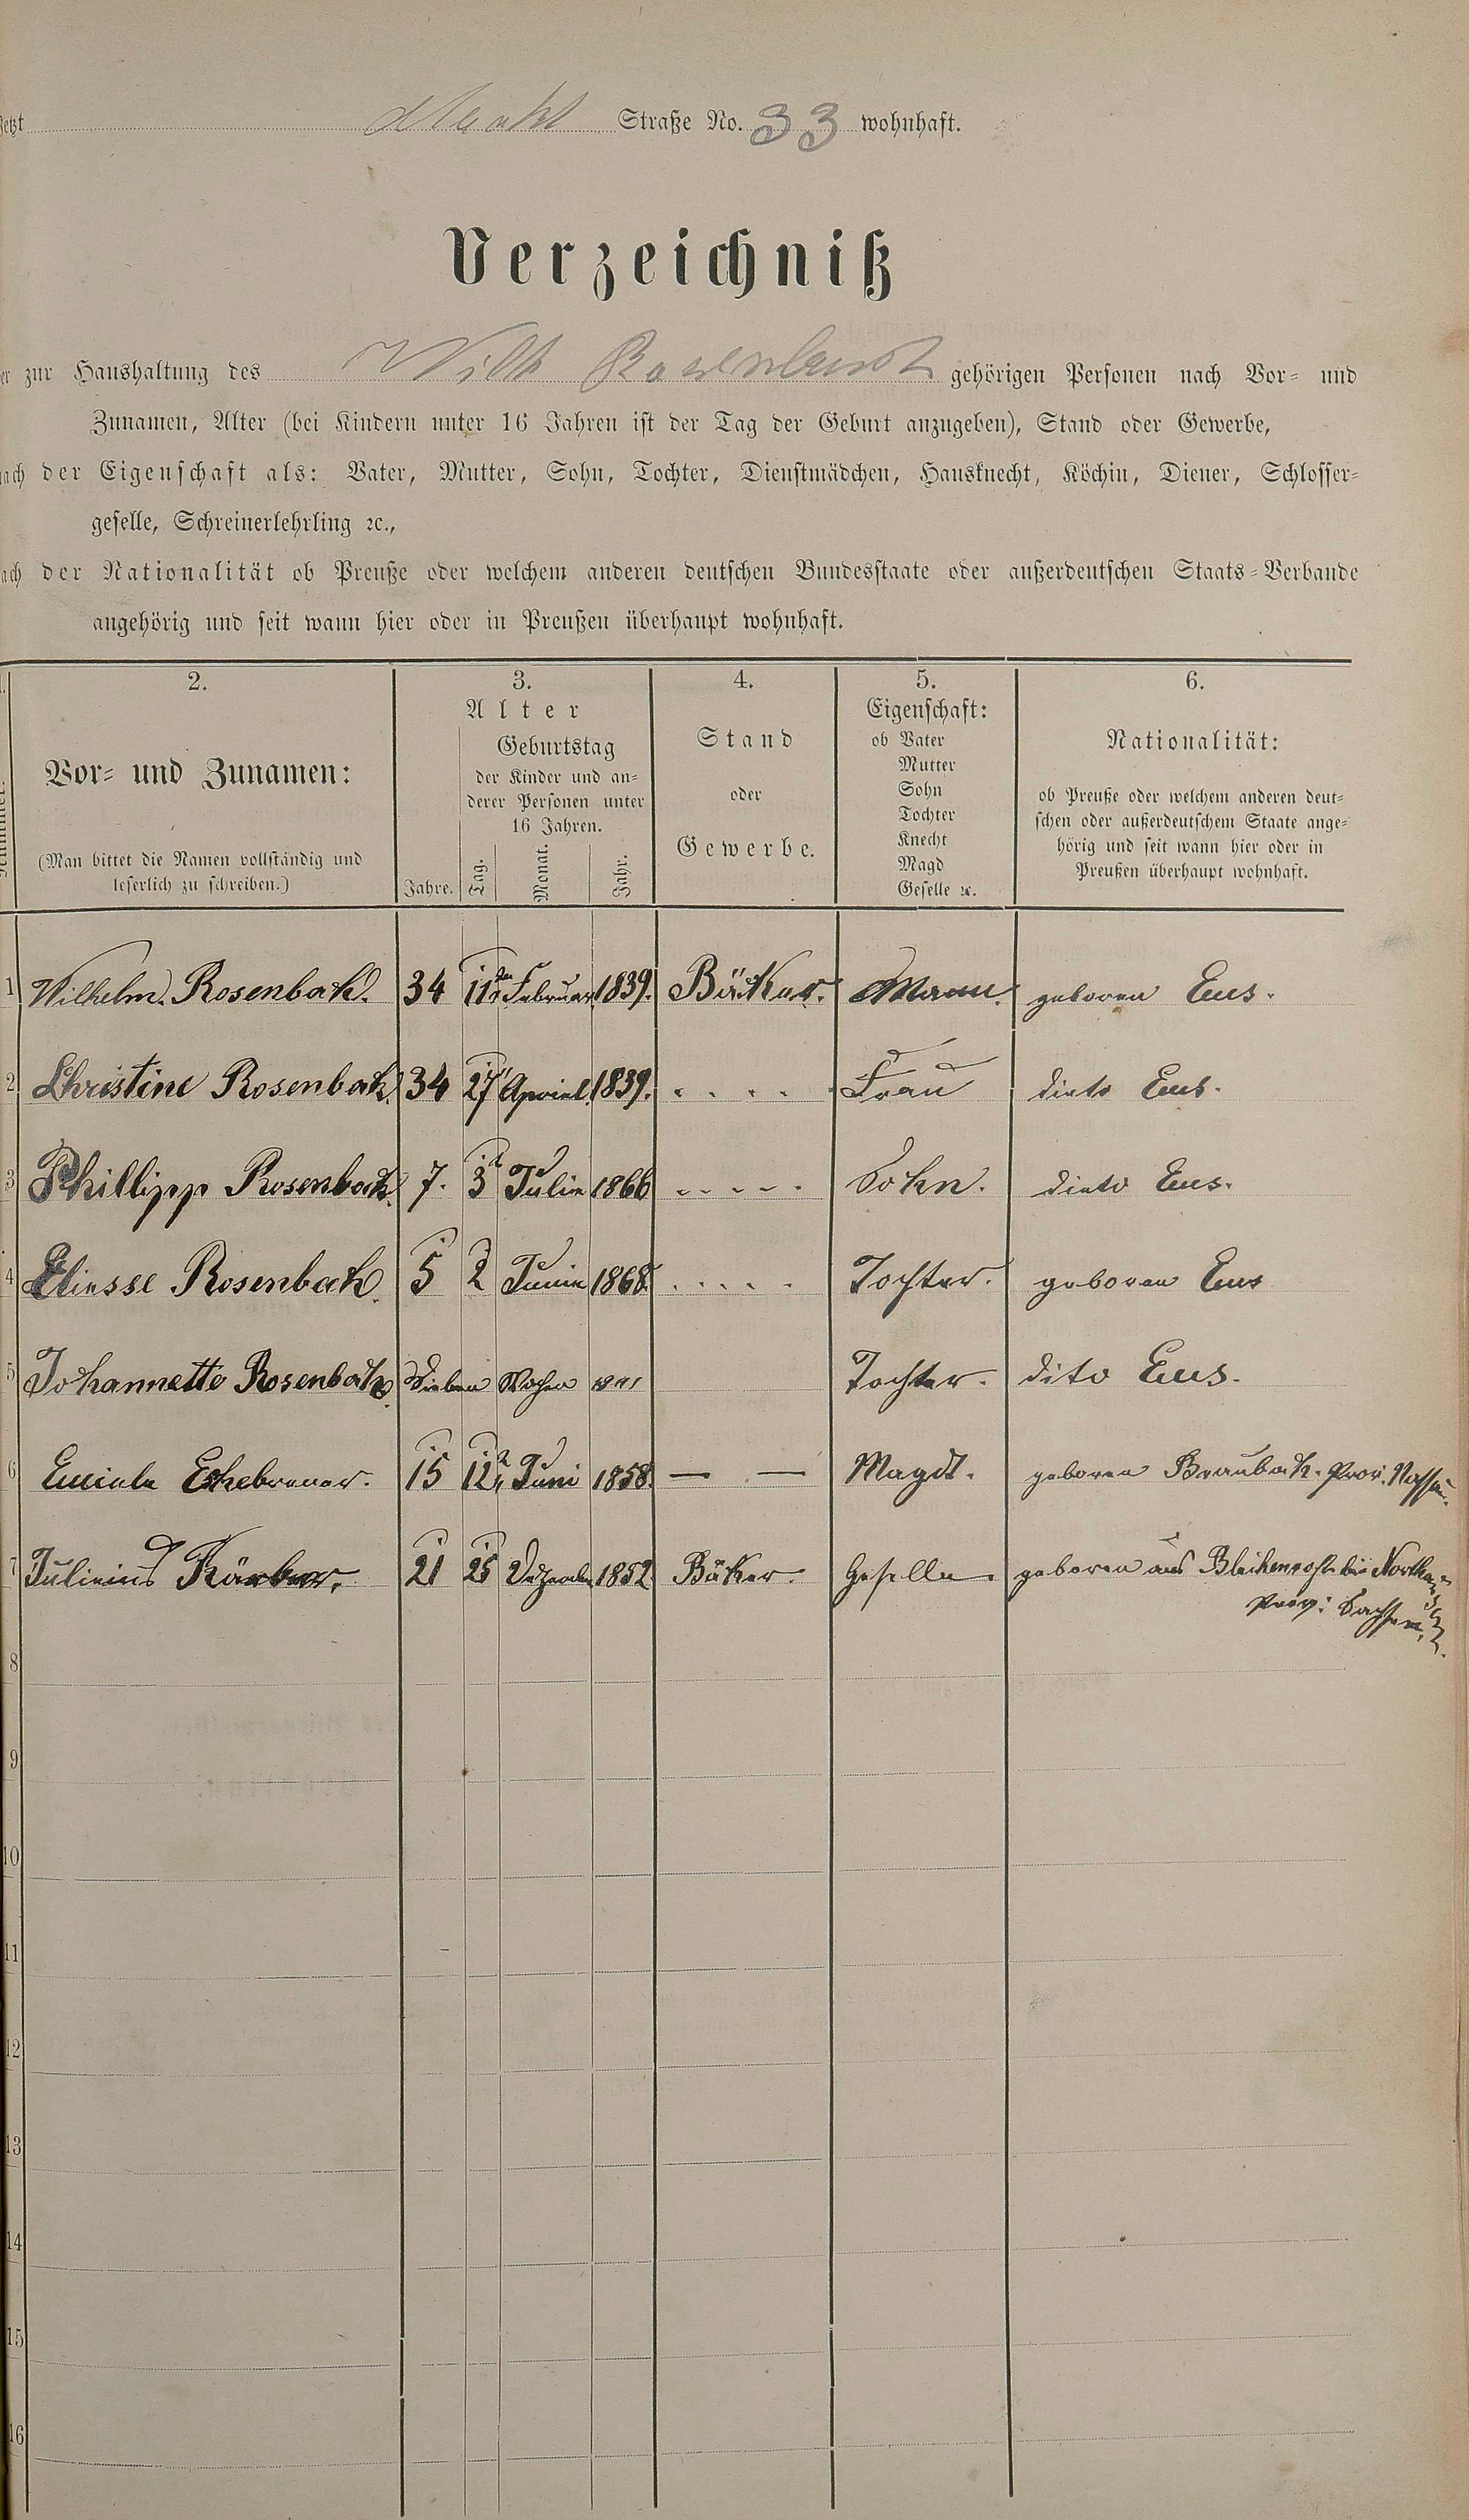 Jetzt Markt Straße No. 33 wohnhaft.
Verzeichniß
er zur Haushaltung des Wilh Rosenbach gehörigen Personen nach Vor- und
Zunamen, Alter (bei Kindern unter 16 Jahren ist der Tag der Geburt anzugeben), Stand oder Gewerbe,
nach der Eigenschaft als: Vater, Mutter, Sohn, Tochter, Dienstmädchen, Hausknecht, Köchin, Diener, Schlosser-
geselle, Schreinerlehrling ꝛc.,
nach der Nationalität ob Preuße oder welchem anderen deutschen Bundesstaate oder außerdeutschen Staats-Verbande
angehörig und seit wann hier oder in Preußen überhaupt wohnhaft.
2. 3. 4. 5. 6.
Vor- und Zunamen:
(Man bittet die Namen vollständig und
leserlich zu schreiben.)
Alter
Geburtstag
der Kinder und an-
derer Personen unter
16 Jahren.
Jahre. Tag. Monat. Jahr.
Stand
oder
Gewerbe.
Eigenschaft:
ob Vater
Mutter
Sohn
Tochter
Knecht
Magd
Geselle ꝛc.
Nationalität:
ob Preuße oder welchem anderen deut-
schen oder außerdeutschem Staate ange-
hörig und seit wann hier oder in
Preußen überhaupt wohnhaft.
1 Wilhelm. Rosenbach. 34 11ten Februar 1839. Bäcker. Mann. geboren Ems.
2 Christine Rosenbach. 34 27 Apriel. 1839. Frau dieto Ems.
3 Phillipp Rosenbach. 7. 3t Julie 1866 Sohn. dieto Ems.
4 Eliesse Rosenbach. 5 2 Junie 1868. Tochter. geboren Ems
5 Johannette Rosenbach. Sieben Wochen Tochter. dito Ems.
6 15 12 Juni 1858. — — Magdt. geboren Braubach. Prov. Nassau.
7 21 25 Dezember 1852 Bäker. Geselle. geboren aus bei
Prov: Sachsen.
8
9
10
11
12
13
14
15
16